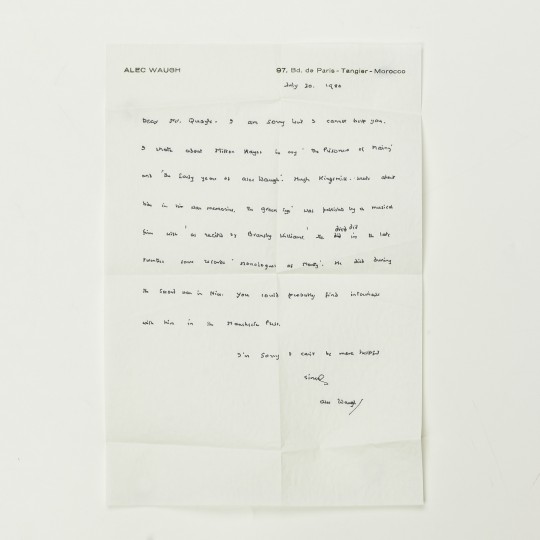 ALEC WAUGH 97. Bd. de Paris - Tangier - Morocco
July 20. 1980
Dear Mr. Quayle. I am sorry but I cannot help you.
I wrote about Milton Hayes in my 'The Prisoners of Mainz'
and 'The Early years of Alec Waugh'. Hugh Kingsmill wrote about
him in his own memories, The green eye' was published by a musical
firm with 'as recited by Bransby Williams' He did in the late
some records 'Monologues of Monty'. He died during
The second war in Nice. You could probably find interviews
with him in The Manchester Press.
I'm sorry I can't be more helpful
Alec Waugh